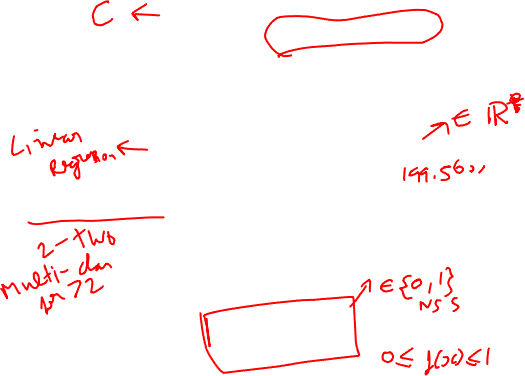 C ←
∈ ℝ
Linear
Regression ←
199.5600
2-two
Multi-class
∈ {0,1}
NS S
0 ≤ f(x) ≤ 1